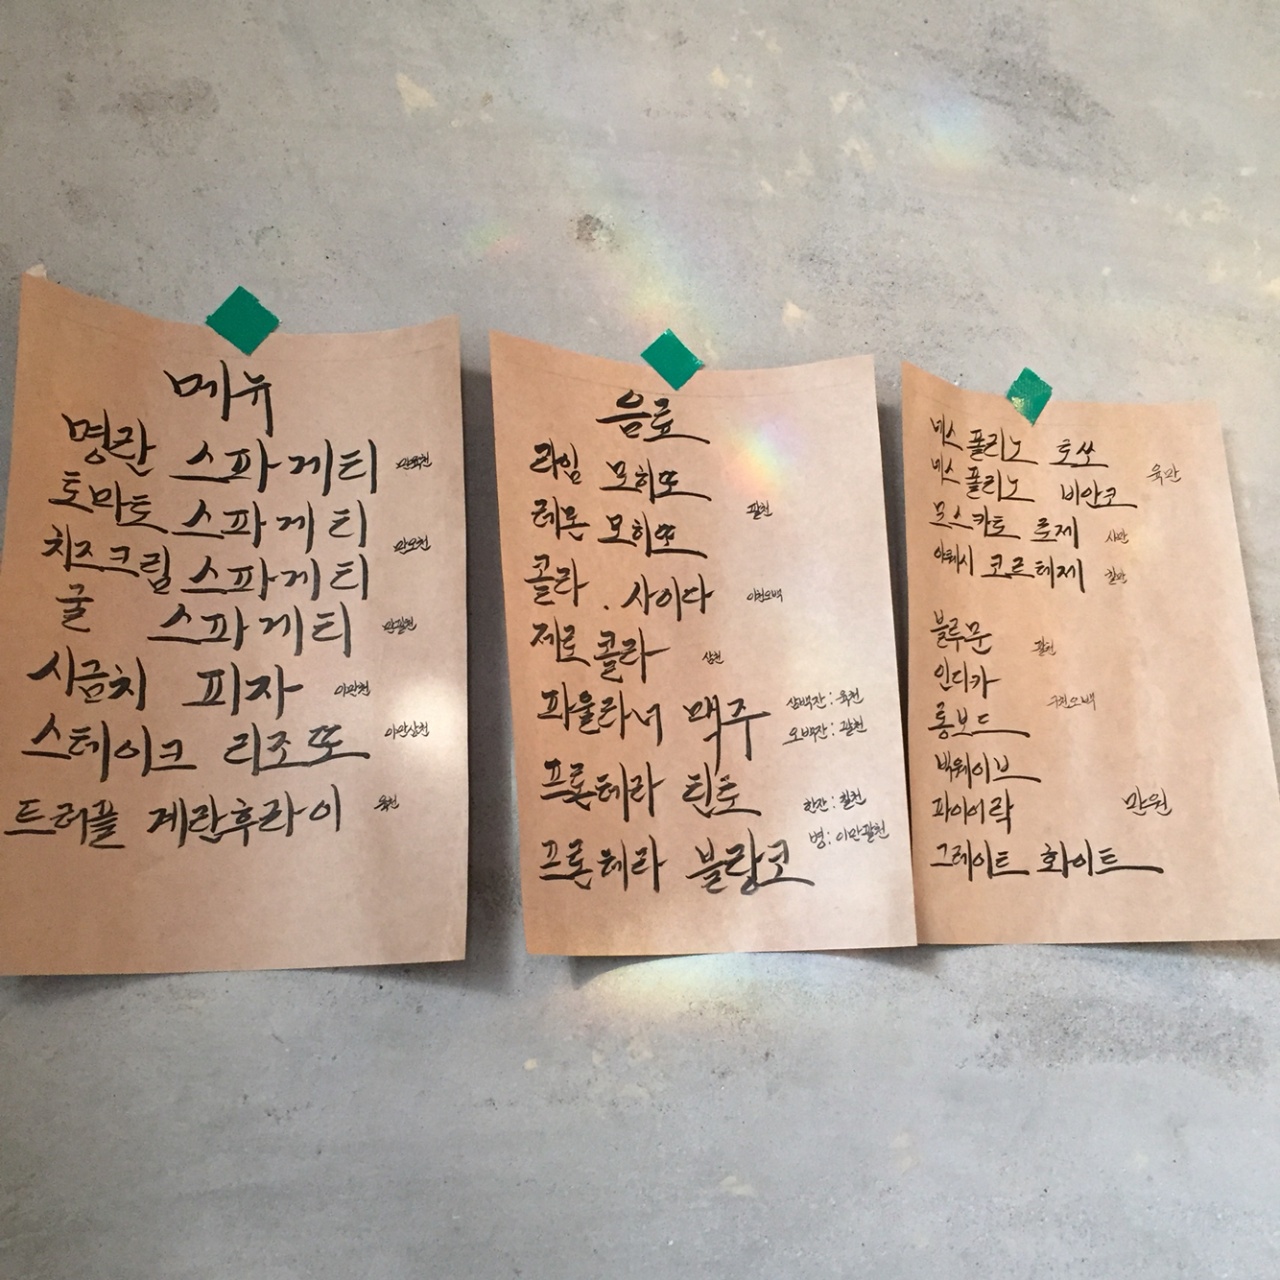 메뉴
명란 스파게티 만육천
토마토 스파게티
만오천
치즈크림 스파게티
굴 스파게티 만팔천
시금치 피자 이만천
스테이크 리조또 이만삼천
트러플 계란후라이 육천
음료
라임 모히또
팔천
레몬 모히또
콜라 . 사이다 이천오백
제로 콜라 삼천
파울라너 맥주 삼백잔 : 육천
오백잔 : 팔천
프론테라 틴토 한잔 : 칠천
병 : 이만팔천
프론테라 블랑코
네스폴리노 로쏘
육만
네스폴리노 비안코
모스카토 루제 사만
야웨시 코르테제 칠만
블루문 팔천
인디카
구천오백
롱보드
빅웨이브
파이어락 만원
그레이트 화이트